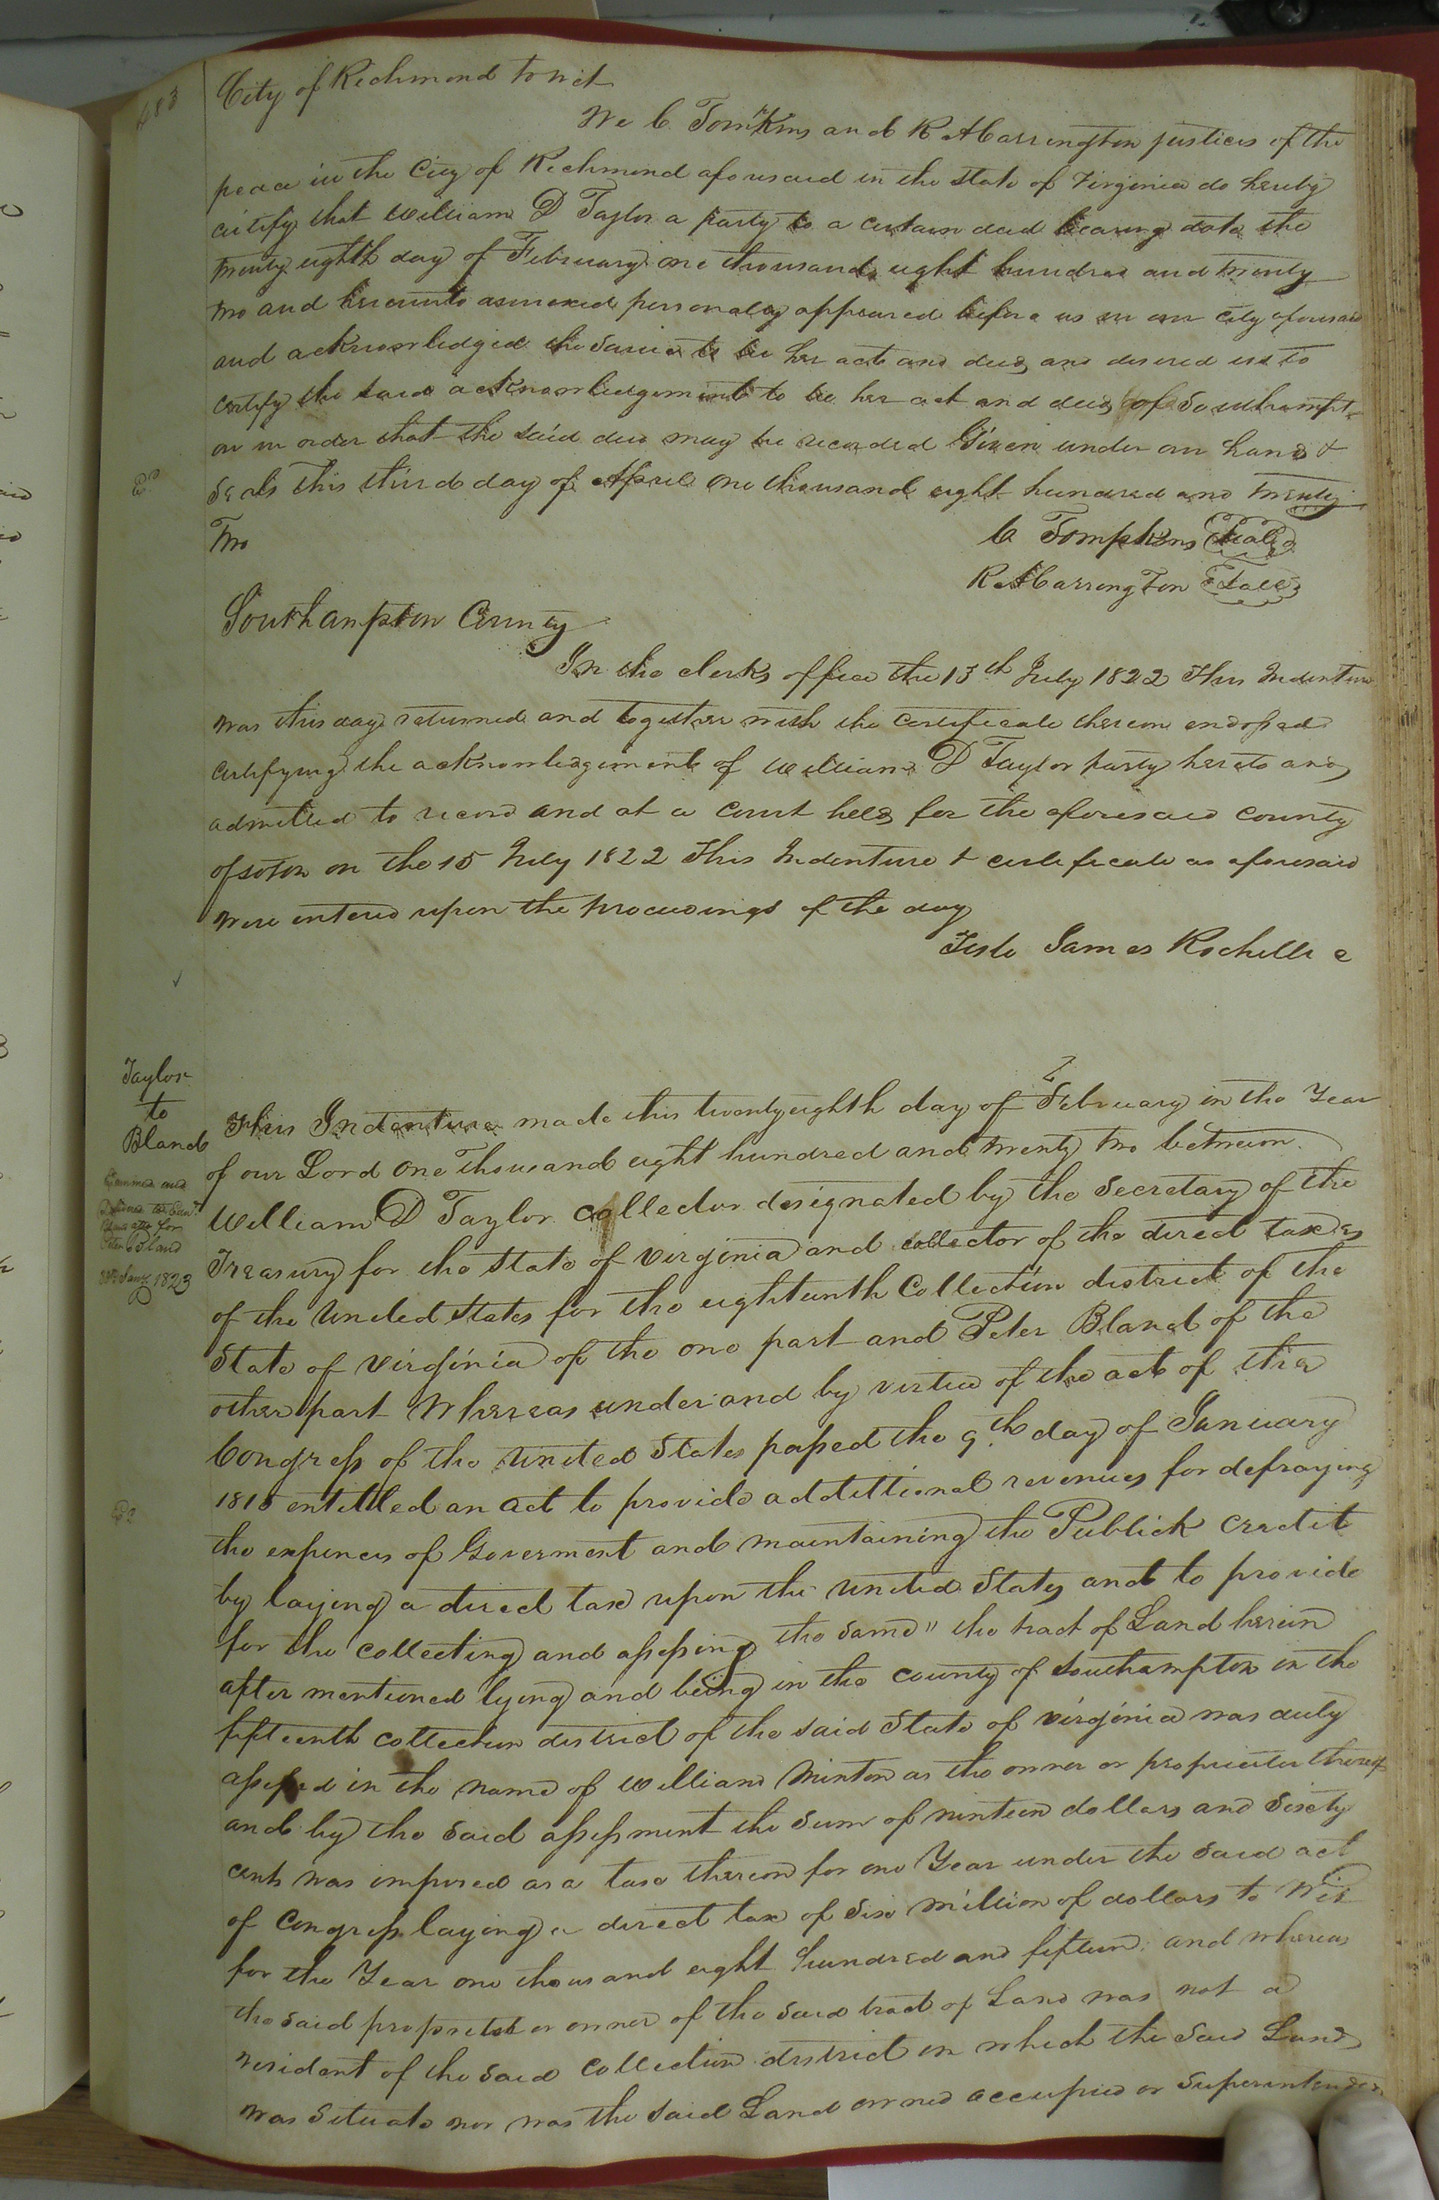 483
City of Richmond to wit
We C Tomkins and R A Carrington justices of the
peace in the City of Richmond aforesaid in the state of Virginia do hereby
certify that William D Taylor a party to a certain deed bearing date the
twenty eighth day of February one thousand eight hundred and twenty
two and hereunto annexed personally appeared before us in our city aforesaid
and acknowledged the same to be his act and deed and desired us to
certify the said acknowledgement to be his act and deed of Southampt
on in order that the said deed may be recorded Given under our hands &
Seals this third day of April one thousand eight hundred and twenty
Two
C Tompkins Seal
R A Carrington Seal
Southampton County
In the clerks office the 13th July 1822 This Indenture
was this day returned and together with the certificate thereon endorsed
certifying the acknowledgement of William D Taylor party hereto and
admitted to record and at a Court held for the aforesaid county
of soton on the 15 July 1822 This Indenture & certificate as aforesaid
were entered upon the proceedings of the day
Teste James Rochelle c
Taylor
to
Bland
Peter Bland
Jany 1823
This Indenture made this twenty eighth day of February in the Year
of our Lord One Thousand eight hundred and twenty two between
William D Taylor collector designated by the Secretary of the
Treasury for the State of Virginia and collector of the direct taxes
of the United States for the eighteenth Collection district of the
State of Virginia of the one part and Peter Bland of the
other part Whereas under and by virtue of the act of the
Congress of the United States passed the 9th day of January
1815 entitled an act to provide additional revenues for defraying
the expences of Goverment and maintaining the Publick credit
by laying a direct tax upon the United States and to provide
for the collecting and assessing the same" the tract of Land herein
after mentioned lying and being in the county of Southampton in the
fifteenth collection district of the said State of Virginia was duly
assessed in the name of William Minton as the owner or proprietor thereof
and by the said assessment the sum of ninteen dollars and sixty
cents was imposed as a tax thereon for one Year under the said act
of Congress laying a direct tax of six million of dollars to wit
for the Year one thousand eight hundred and fifteen and whereas
the said proprietor or owner of the said tract of Land was not a
resident of the said Collection district in which the said Land
was situate nor was the said Land owned occupied or Superintended